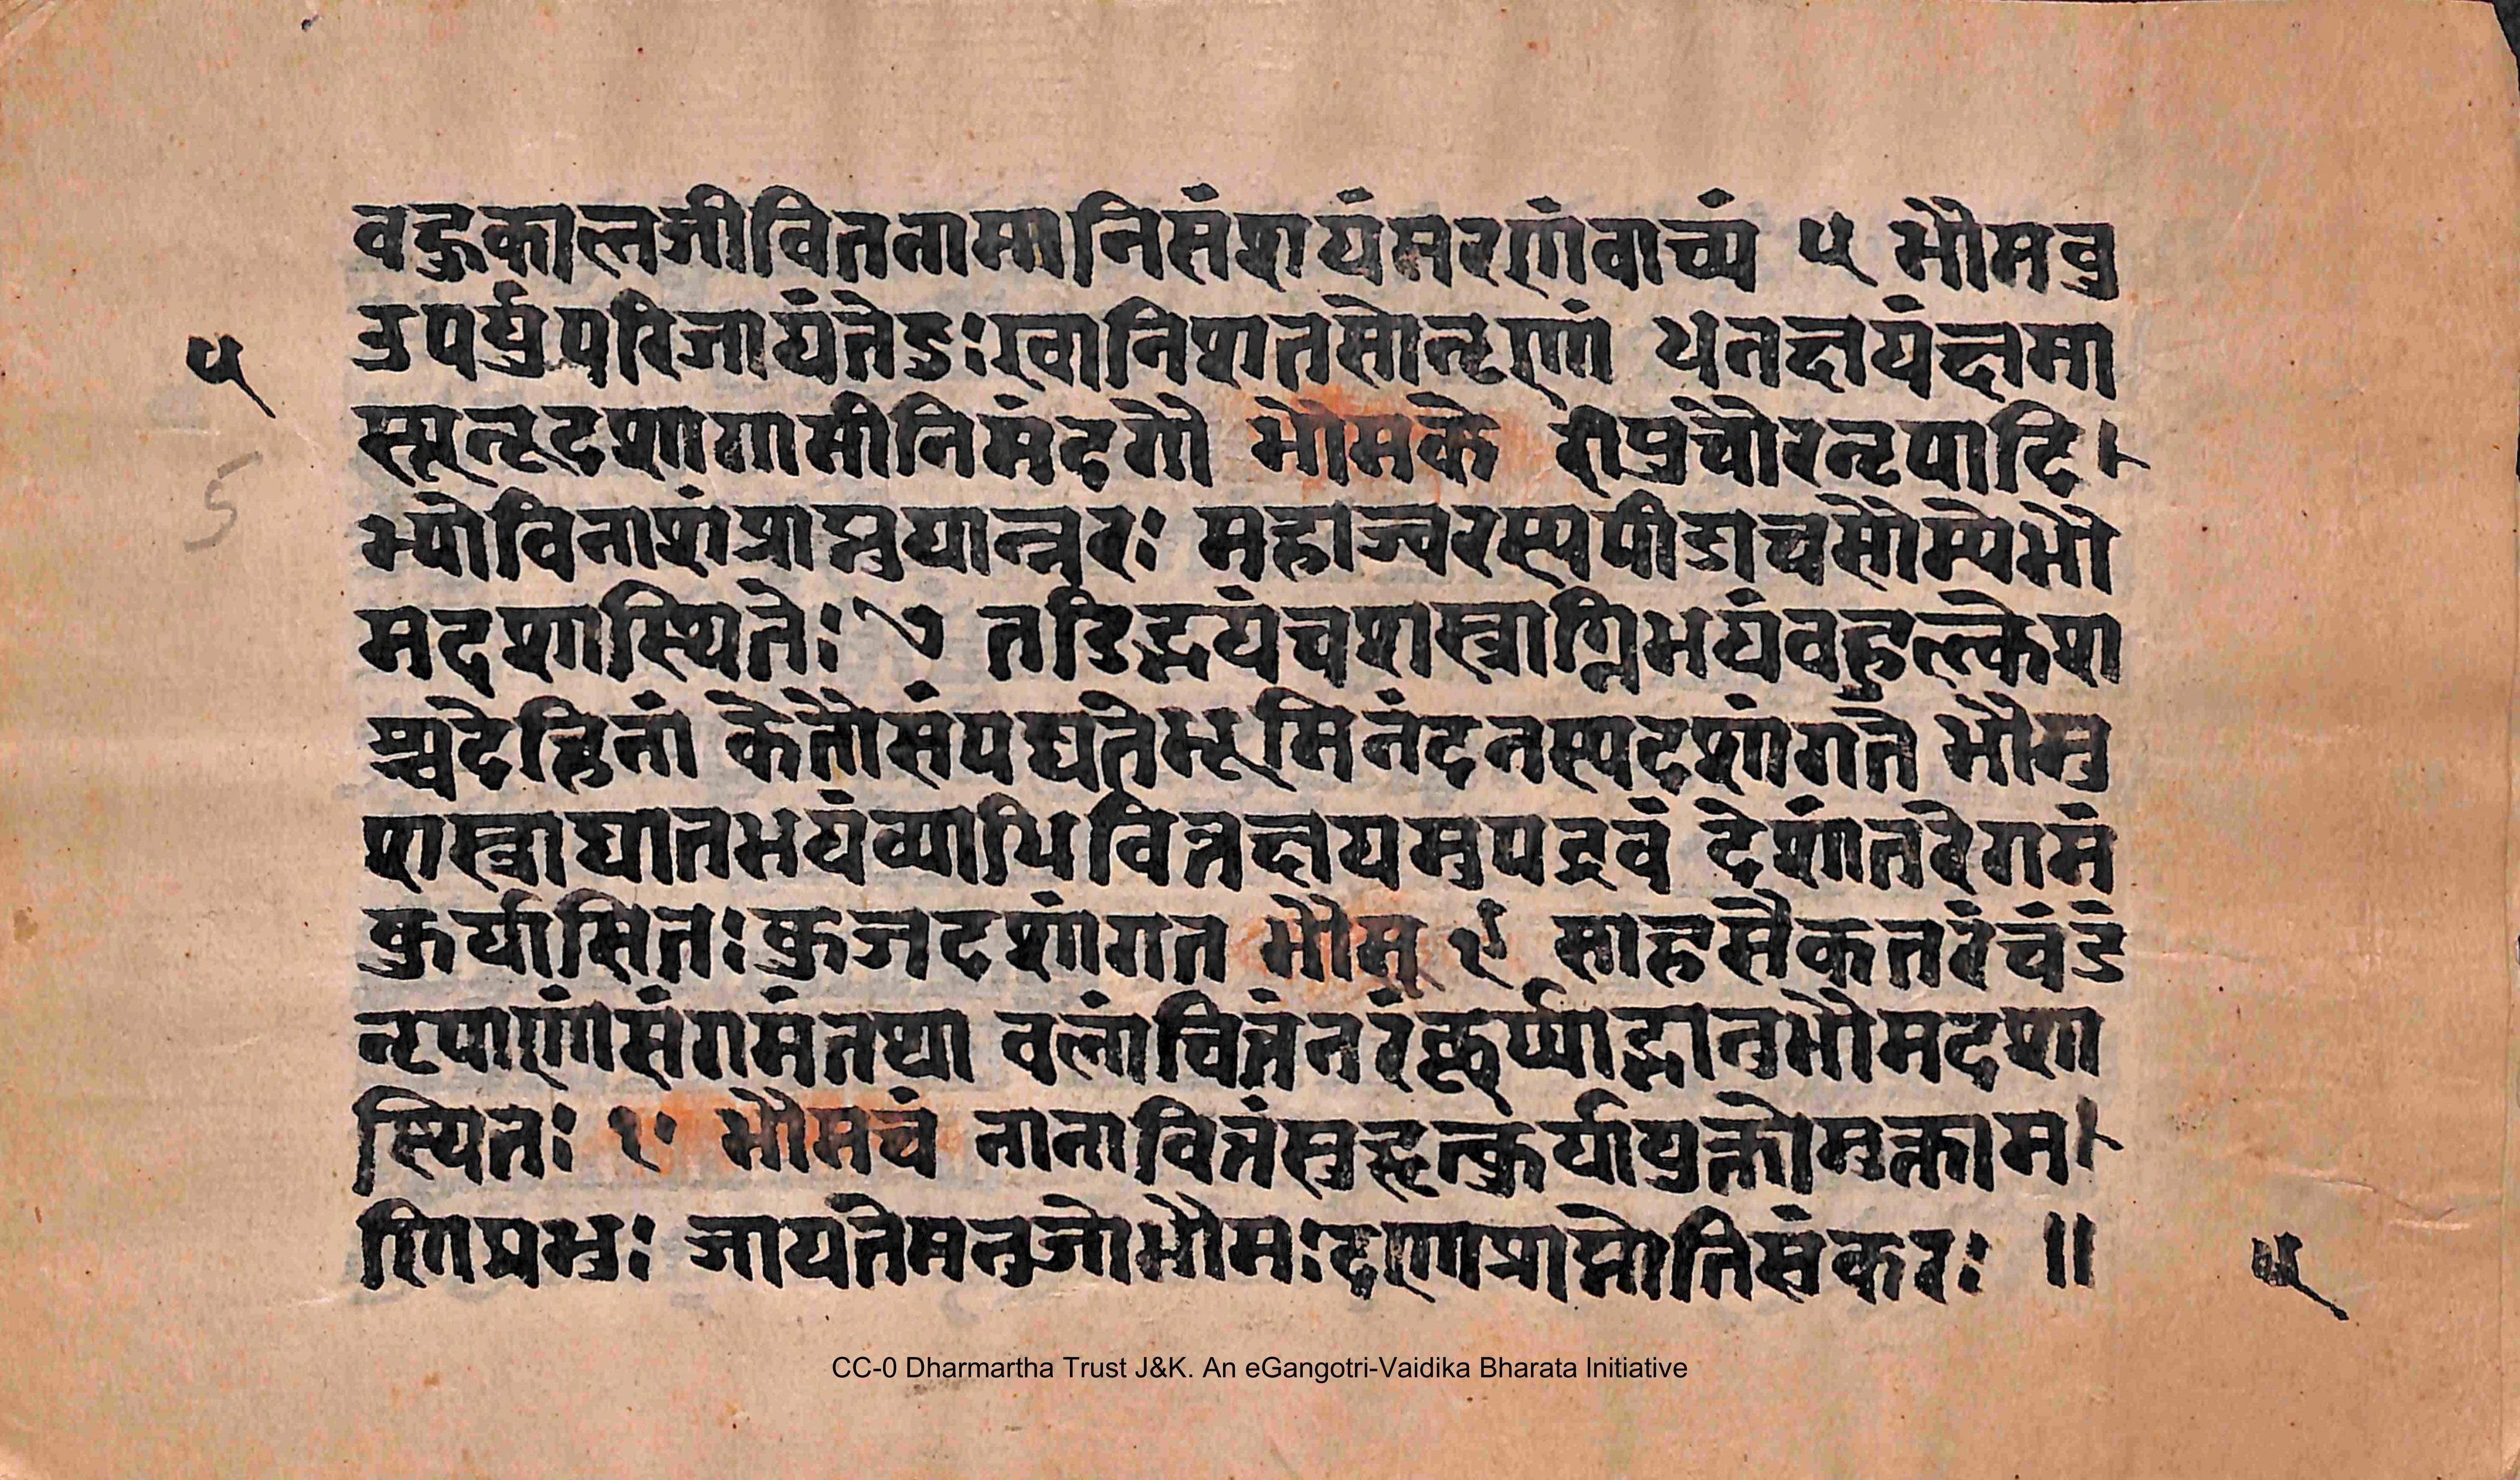 वहुकालजीवितनामानिसंशयंमरणंवाच्यं ५ भौमवु
उपर्युपरिजायंतेडुःखानिशतसोनृणां धनक्षयंक्षमा
स्सूनृदशागामीनिमंदगौ भौमके रीपुचौरनृपादि
भ्योविनाशंप्राप्नुयान्नरः महाज्वरस्यपीडाचसौम्येभौ
मदशास्थितेः ७ तडिद्भयंचशस्त्राग्निभयंवहुलक्लेश
श्चदेहिनां केतौसंपद्यतेभूमिनंदनस्यदशांगते भौमु
शस्त्राघातभयंव्याधिवित्तक्षयमुपद्रवं देशांतरेगमं
कुर्यासितःकुजदशांगत भौमर ९ साहसैकतरंचंडं
नृपाणांसंगमंतथा वलांचित्तंनरंकुर्य्याद्भानुभौमदशा
स्थितः १० भौमचं नानावित्तंसुहृत्कुर्यायुक्तोमुक्ताम
णिप्रभुः जायतेमनुजोभौमःदशाप्राप्नोतिसंकरः ॥
५
5
५
CC-0 Dharmartha Trust J&K. An eGangotri-Vaidika Bharata Initiative